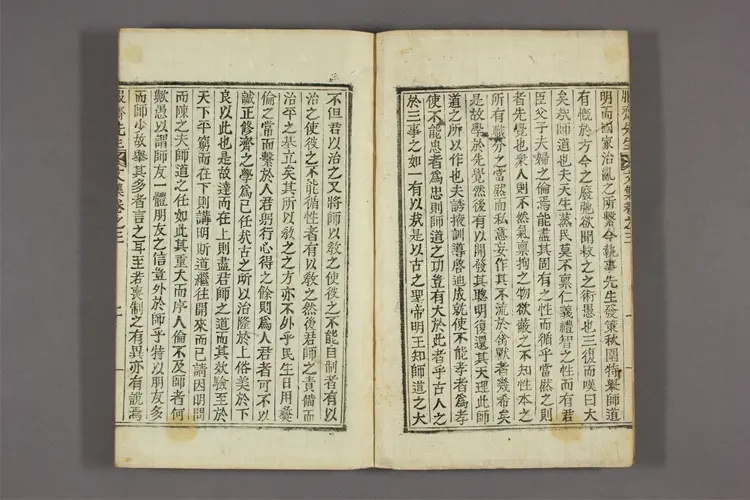 明而國家治亂之所繫今執事先生發策秋圍特擧師道
有慨於方今之廢弛欲聞救之之術愚也三復而嘆曰大
矣哉師道也夫天生蒸民莫不稟仁義禮智之性而有君
臣父子夫婦之倫焉能盡其固有之性而循乎當然之則
者先覺也衆人則不然氣稟拘之物欲蔽之不知性本之
所有職分之當然而私意妄作其不流於禽獸者幾希矣
是故學於先覺然後有以開發其聰明復還其天理此師
道之所以作也夫誘掖訓導啓迪成就使不能孝者爲孝
使不能忠者爲忠則師道之功豈有大於此者乎古人之
於三事之如一有以哉是以古之聖帝明王知師道之大
不但君以治之又將師以敎之使彼之不能自制者有以
治之使彼之不能循性者有以敎之然後君師之責備而
治平之基立矣其所以敎之之方亦不外乎民生日用彜
倫之常而繫於人君躬行心得之餘則爲人君者可不以
誠正修齊之學爲已任哉古之所以治隆於上俗美於下
良以此也是故達而在上則盡君師之道而其效驗至於
天下平窮而在下則講明斯道繼往開來而已請因明問
而陳之夫師道之任如此其重大而序人倫不及師者何
歟愚以謂師友一體朋友之信豈外於師乎特以朋友多
而師少故擧其多者言之耳至若喪制之有異亦有說焉
先生文集卷之三